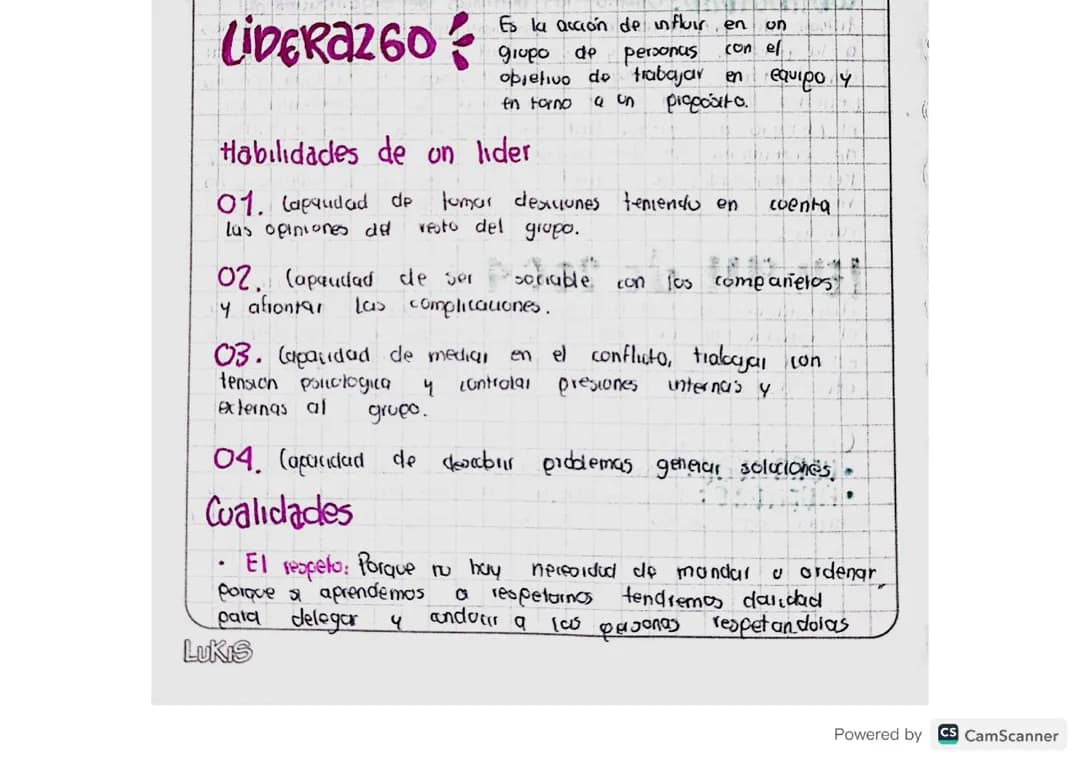 LIDERAZGO
Es la acción de influir en un
grupo de personas con el
objetivo de trabajar en equipo y
en torno a un propósito.
Habilidades de un lider
01. Capacidad de tomar desiciones teniendo en cuenta
las opiniones del resto del grupo.
02. Capacidad de ser sociable con los compañeros
y afrontar las complicaciones.
03. Capacidad de mediar en el conflicto, trabajar con
tensión psicologica y controlar presiones internas y
externas al grupo.
04. Capacidad de descubrir problemas generar soluciones.
Cualidades
• El respeto: Porque no hay necesidad de mandar u ordenar,
porque si aprendemos a respetarnos tendremos claridad
para delegar y conducir a las personas respetandolas
LUKIS
Powered by CS CamScanner